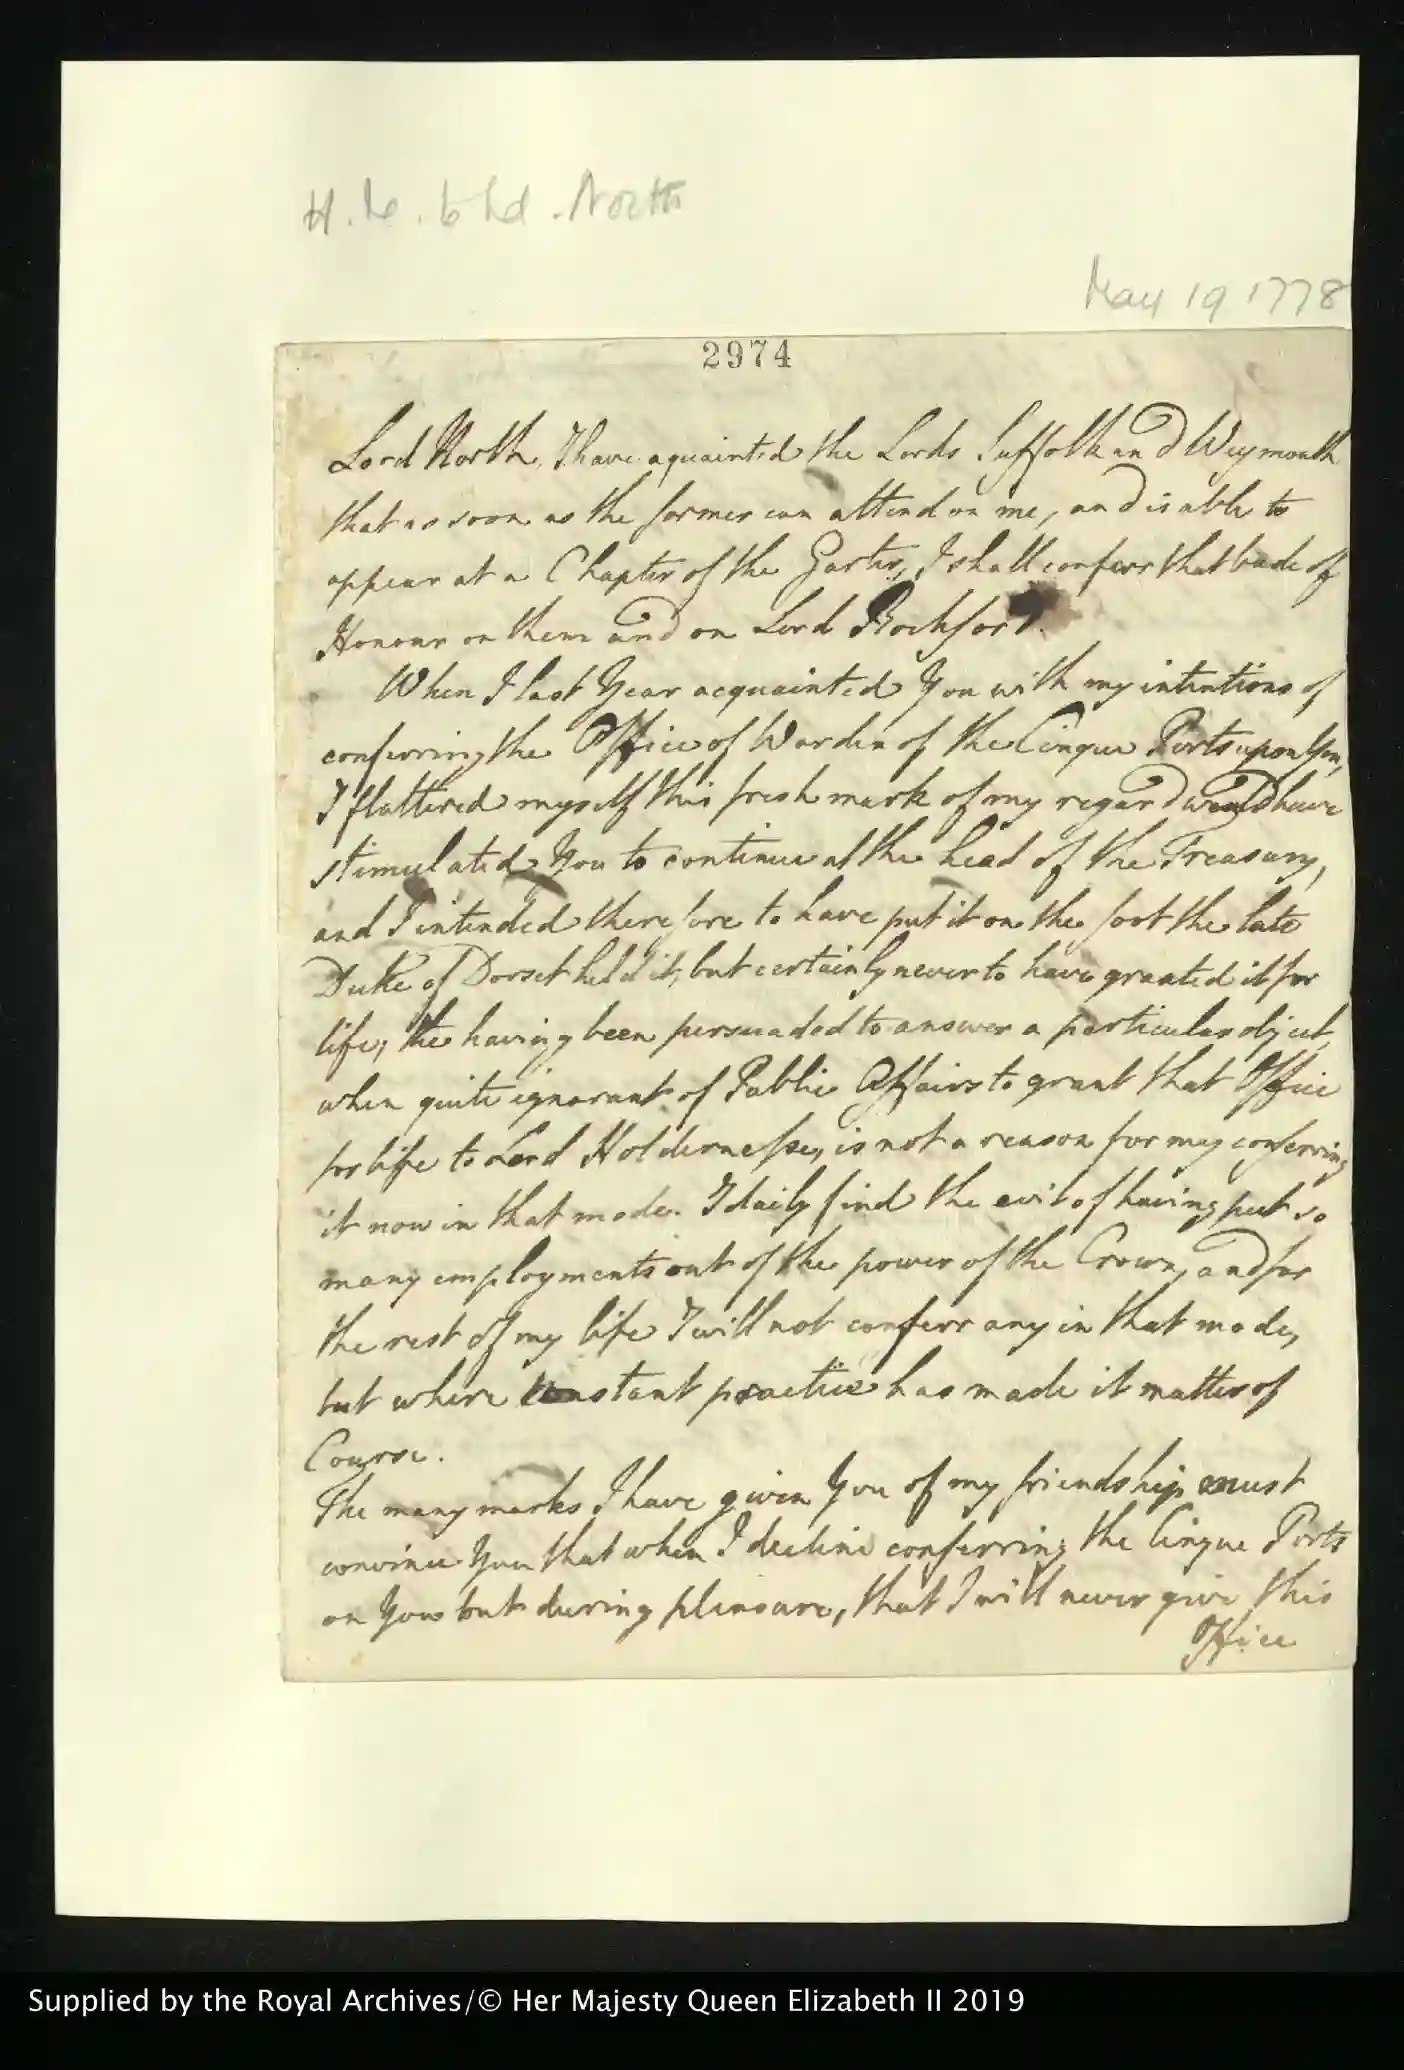 H.M. to Ld. North
May 19 1778
2974
Lord North, I have aquainted the Lords Suffolk and Weymouth
that as soon as the former can attend on me, and is able to
appear at a Chapter of the Garter, I shall conferr that bade of
Honour on them and on Lord Rochford.
When I last Year acquainted You with my intentions of
conferring the Office of Warden of the Cinque Ports upon You,
I flattered myself this fresh mark of my regard would have
stimulated You to continue at the head of the Treasury,
and I intended therefore to have put it on the foot the late
Duke of Dorset held it, but certainly never to have granted it for
life; the having been persuaded to answer a particular object,
when quite ignorant of Public Affairs to grant that Office
for life to Lord Holdernesse, is not a reason for my conferring
it now in that mode. I daily find the evil of having put so
many employments out of the power of the Crown, and for
the rest of my life I will not conferr any in that mode,
but where constant practice has made it matter of
Course.
The many marks I have given You of my friendship must
convince You that when I decline conferring the Cinque Ports
on You but during pleasure, that I will never give this
Office
Supplied by the Royal Archives/© Her Majesty Queen Elizabeth II 2019